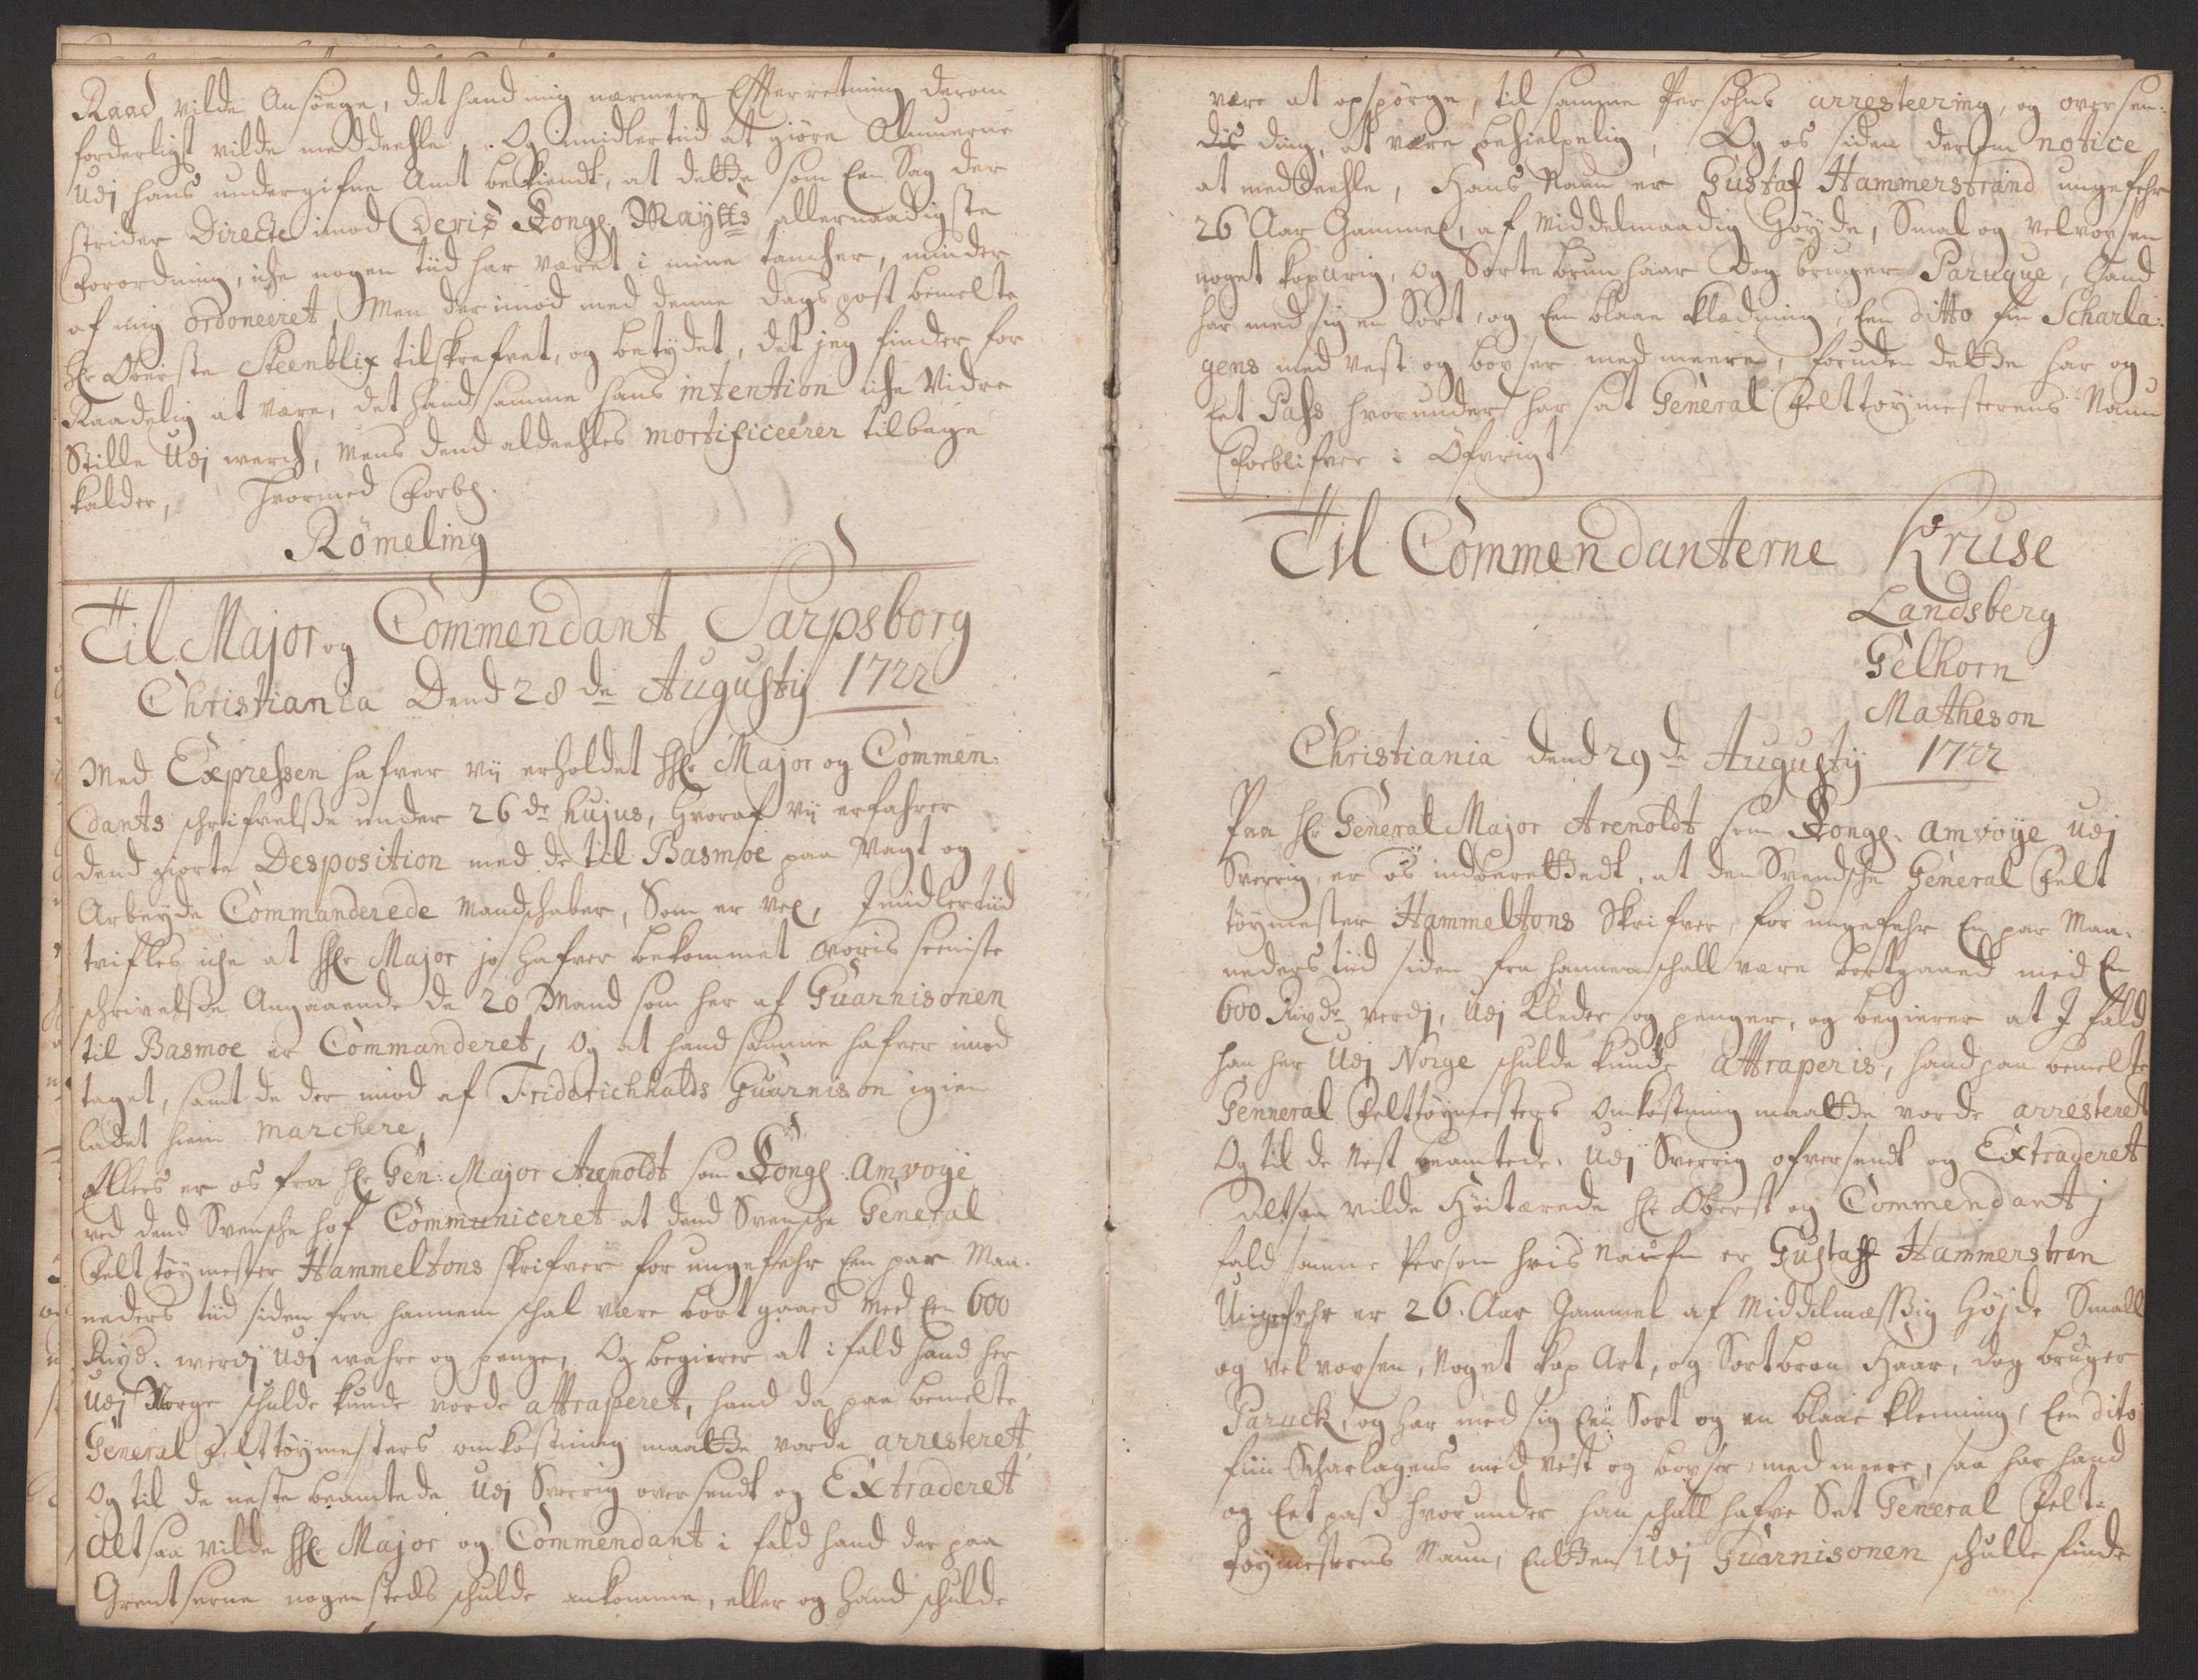 Raad vilde Ansöege, det hand mig nærmere Efterretning derom
forderligst vilde meddeehle, Og imidlertiid at giöre Almuerne
Udj hans undergifne Amt bekiendt, at dette som Een Sag der
strider Directe imod Deris Kongl Maÿtts allernaadigste
Forordning, iche nogen tiid har været i mine tancher, minder
af mig ordoneeret, Men derimod med denne dags post bemelte
Hr Oberste Steenblix tilskrefvet, og betydet, det jeg finder for
Raadelig at være, det hand samme hans intention iche Vidre
Stille Udj werch, Mens dend aldeehles mortificeerer tilbage
kalder, hvormed Forbl.
Römeling
Til Major og Commendant Sarpsborg
Christiania Dend 28 de Augustij 1722
Med Expressen hafver vij erholdet Hr Major og Commen:
dants schrifvelsse under 26 de hujus, hvoraf vij erfahrer
dend giorte Desposition med de til Basmoe paa Vagt og
Arbeyde Commanderede Mandschaber, Som er vel, Imidlertiid
tvifles iche at Hr Major jo hafver bekommet voris seeniste
schrivelsse Angaaende de 20 Mand som her af Guarnisonen
til Basmoe er Commanderet, Og at hand samme hafver imod
taget, samt de der imod af Friderichhalds Guarnison igien
ladet hiem marchere,
Ellers er os fra Hr Gen: Major Arenoldt som Kongl: Amvoye
ved dend Svensche hof Communiceret at dend Svensche General
Felt töymester Hammeltons skrifver for ungefehr Een par Maa-
neders tiid siden fra hannem schal være bort gaaed Med Een 600
Rixd. werdj Udj wahre og penge, Og begierer at i fald hand her
Udj Norge schulde kunde vorde attraperet, hand da paa bemelte
General Felttöymesters omkostning maatte vorde arresteret
Og til de neste beamtede Udj Sverrig oversendt og Extraderet
Altsaa vilde Hr Major og Commendant i fald hand der paa
Grentserne nogensteds schulde ankomme, eller og hand schulde
være at opspörge, til samme Persohns arresteering, og oversen:
dis ding, at være behielpelig, Og os siden derom notice
at meddeehle, Hans Naun er Gustaf Hammerstrand ungefehr
26 Aar Gammel, af Middelmaadig Höyde, Smal og velvoxsen
noget koparig, og Sortebrun haar dog bruger Paruque, Hand
har med sig en Sort, og Een blaae klædning, Een ditto fin Scharla:
gens med Vest og boxser med meere, foruden dette har og
Eet Pass hvorunder har sat General Felttöymesterens Naun
Forblifver i Öfvrigt
Til Commendanterne Kruse
Landsberg
Gelhorn
Matheson
Christiania dend 29 de Augustij 1722
Fra Hr General Major Arenoldt som Kongl. amvoije Udj
Sverrig, er os indberettedt, at den Svendsche General Felt
töymester Hammeltons Skrifver, for ungefehr En par Maa-
neders tiid siden fra hannem schall være bortgaaed med En
600 Rixdr verdj, Udj Kleder og penger, og begierer at I fald
han her Udj Norge schulde kunde attraperis, hand paa bemelte
Genneral Felttöymesters Omkostning maatte vorde arresteret
Og til de Nest beamtede Udj Sverrig ofversendt og Extraderet
Altsaa vilde Höitærede Hr Oberst og Commendant j
fald samme Person hvis Naufn er Gustaff Hammerstran
Ungefehr er 26. Aar Gammel af Middelmæssig Höjde Small
og vel voxsen, Noget kop Art, og Sortbrun Haar, dog bruger
Paruck, og har med sig Een Sort og en blaae kledning, Een dito
fiin Scharlagens med Vest og boxser med meere, saa har hand
og Eet pass hvorunder han schall hafve Set General Felt-
töymesterns Naun, Entten Udj Guarnisonen schulle finde